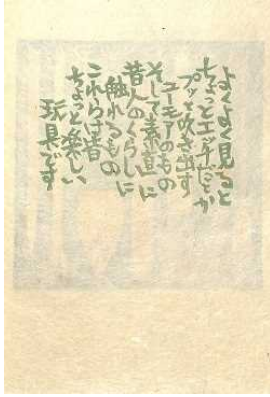 よくよく見ると
ちょっとエッチだとか
プッと吹き出す
ユーモアのもの
そして素直に
昔人のくらしに
触れるもの
これらは皆
ちょっと楽しい
玩具です